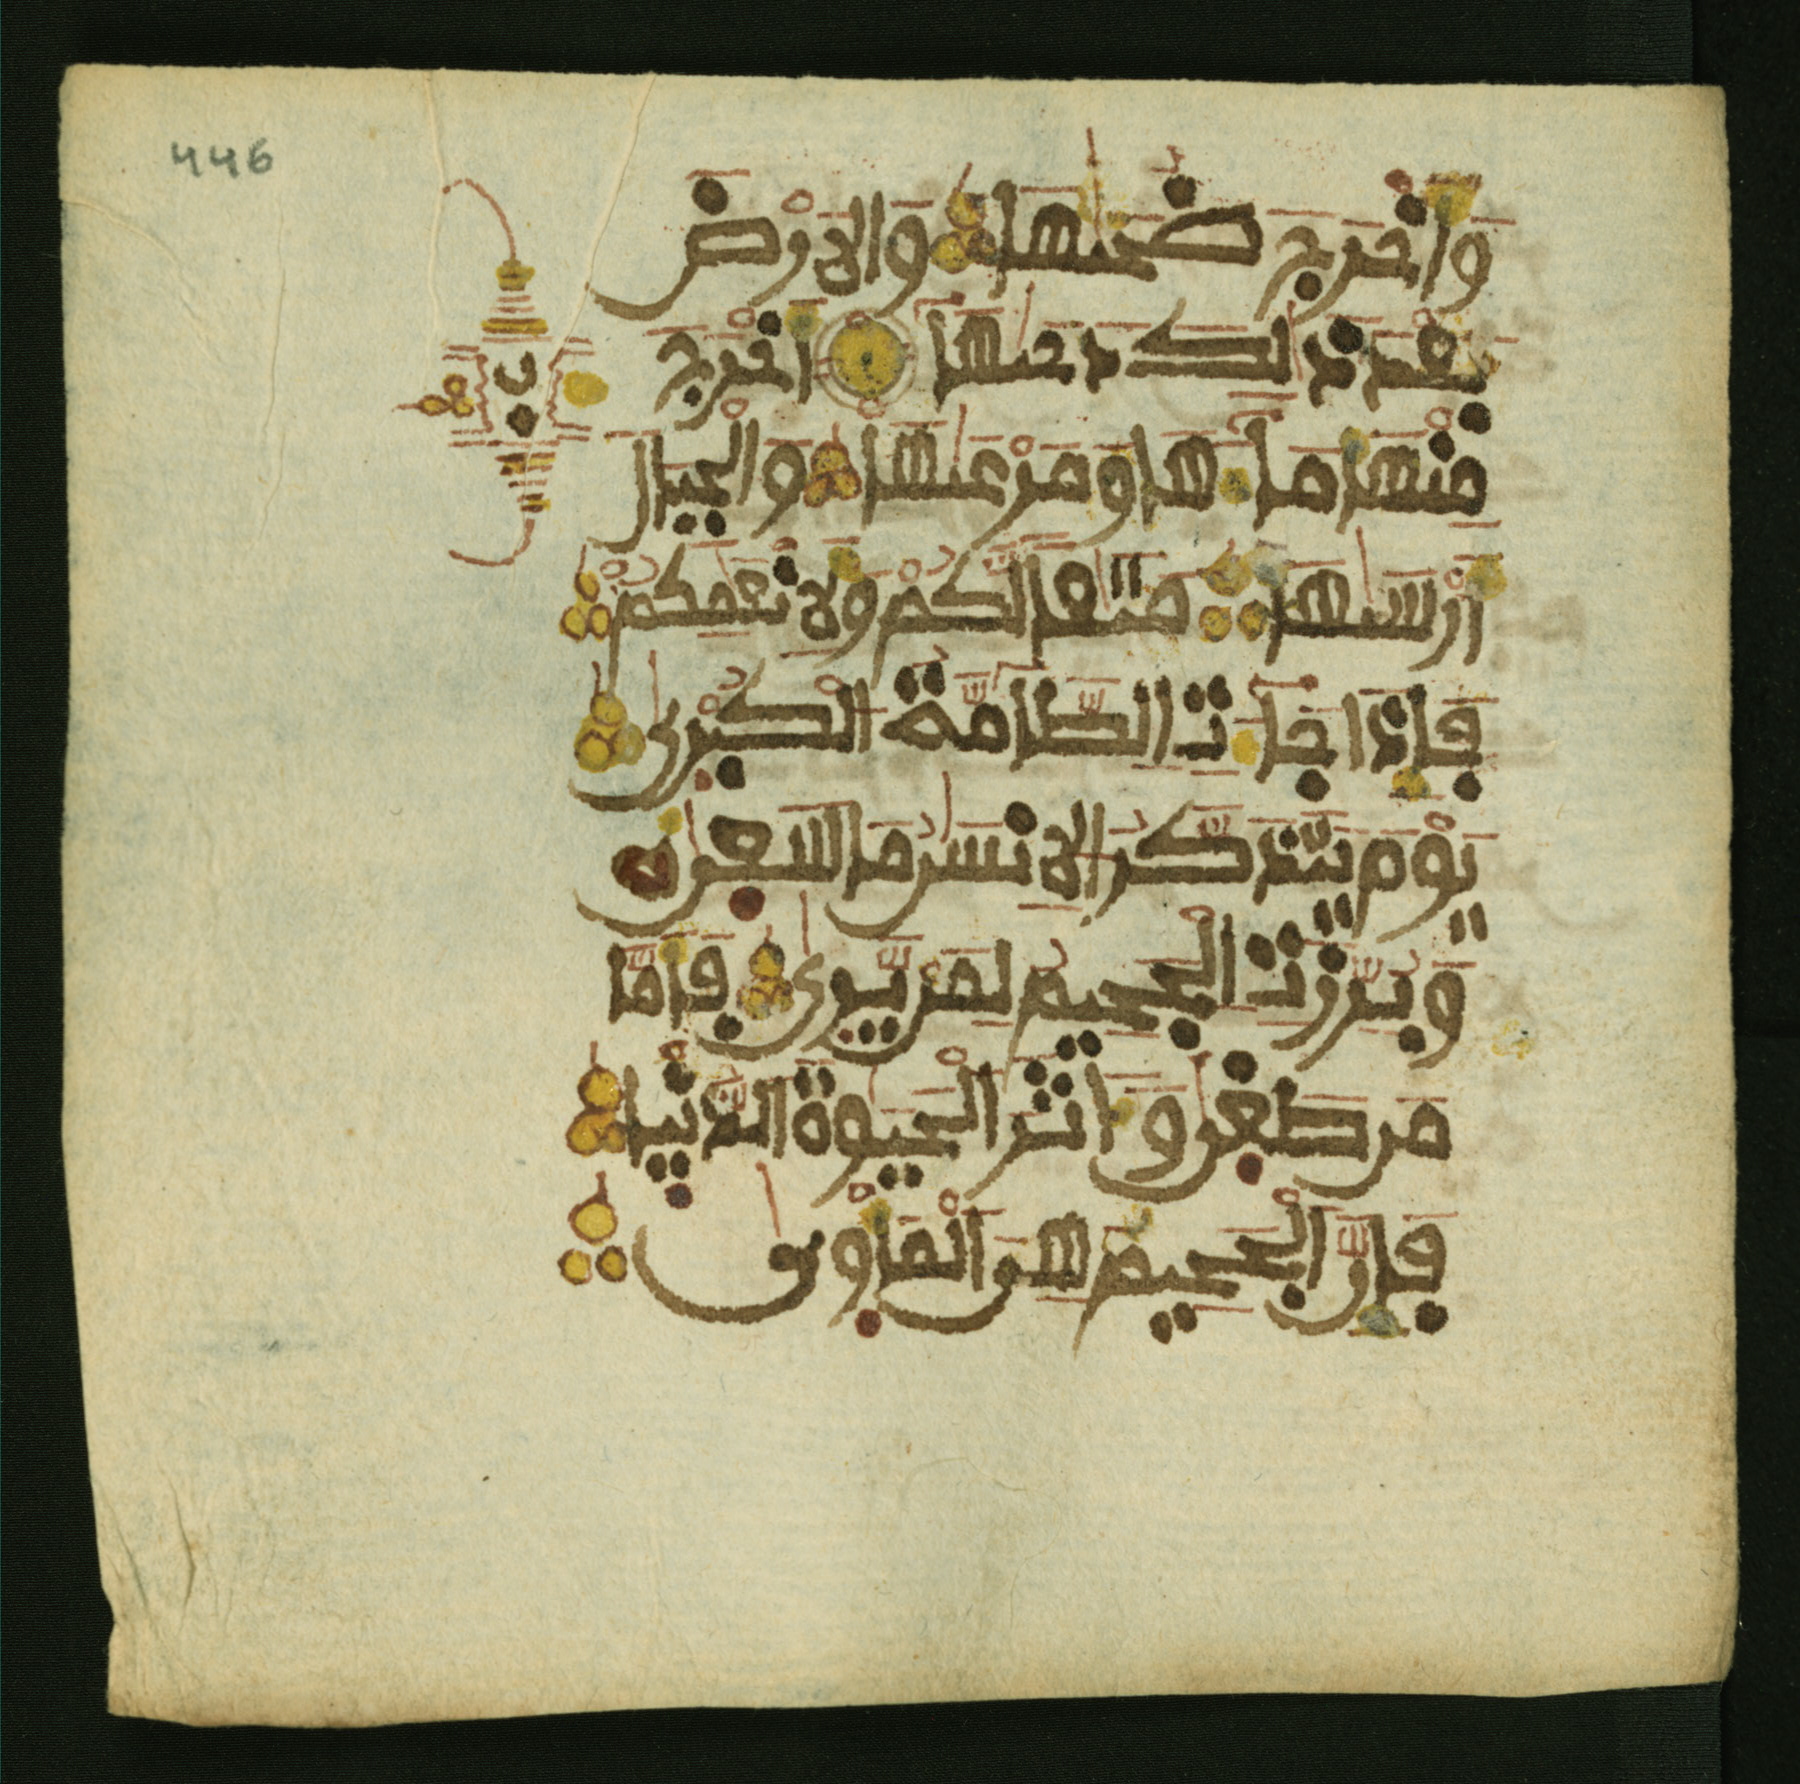 446
وَأَخْرَجَ ضُحَىٰهَا وَالَارْضَ
بَعْدَ ذَٰلِكَ دَحَىٰهَا أَخْرَجَ
مِنْهَا مَآءَهَا وَمَرْعَىٰهَا وَالْجِبَالَ
أَرْسَىٰهَا مَتَٰعاً لَّكُمْ وَلَأَنْعَٰمِكُمْ
ڢَإِذَا جَآءَتِ الطَّآمَّةُ الْكُبْرَىٰ
يَوْمَ يَتَذَكَّرُ الِانسَٰنُ مَا سَعَىٰ
وَبُرِّزَتِ الْجَحِيمُ لِمَنْ يَّرَىٰ ڢَأَمَّا
مَن طَغَىٰ وَءَاثَرَ الْحَيَوٰةَ الدُّنْيَا
ڢَإِنَّ الْجَحِيمَ هِيَ الْمَأْوَىٰ